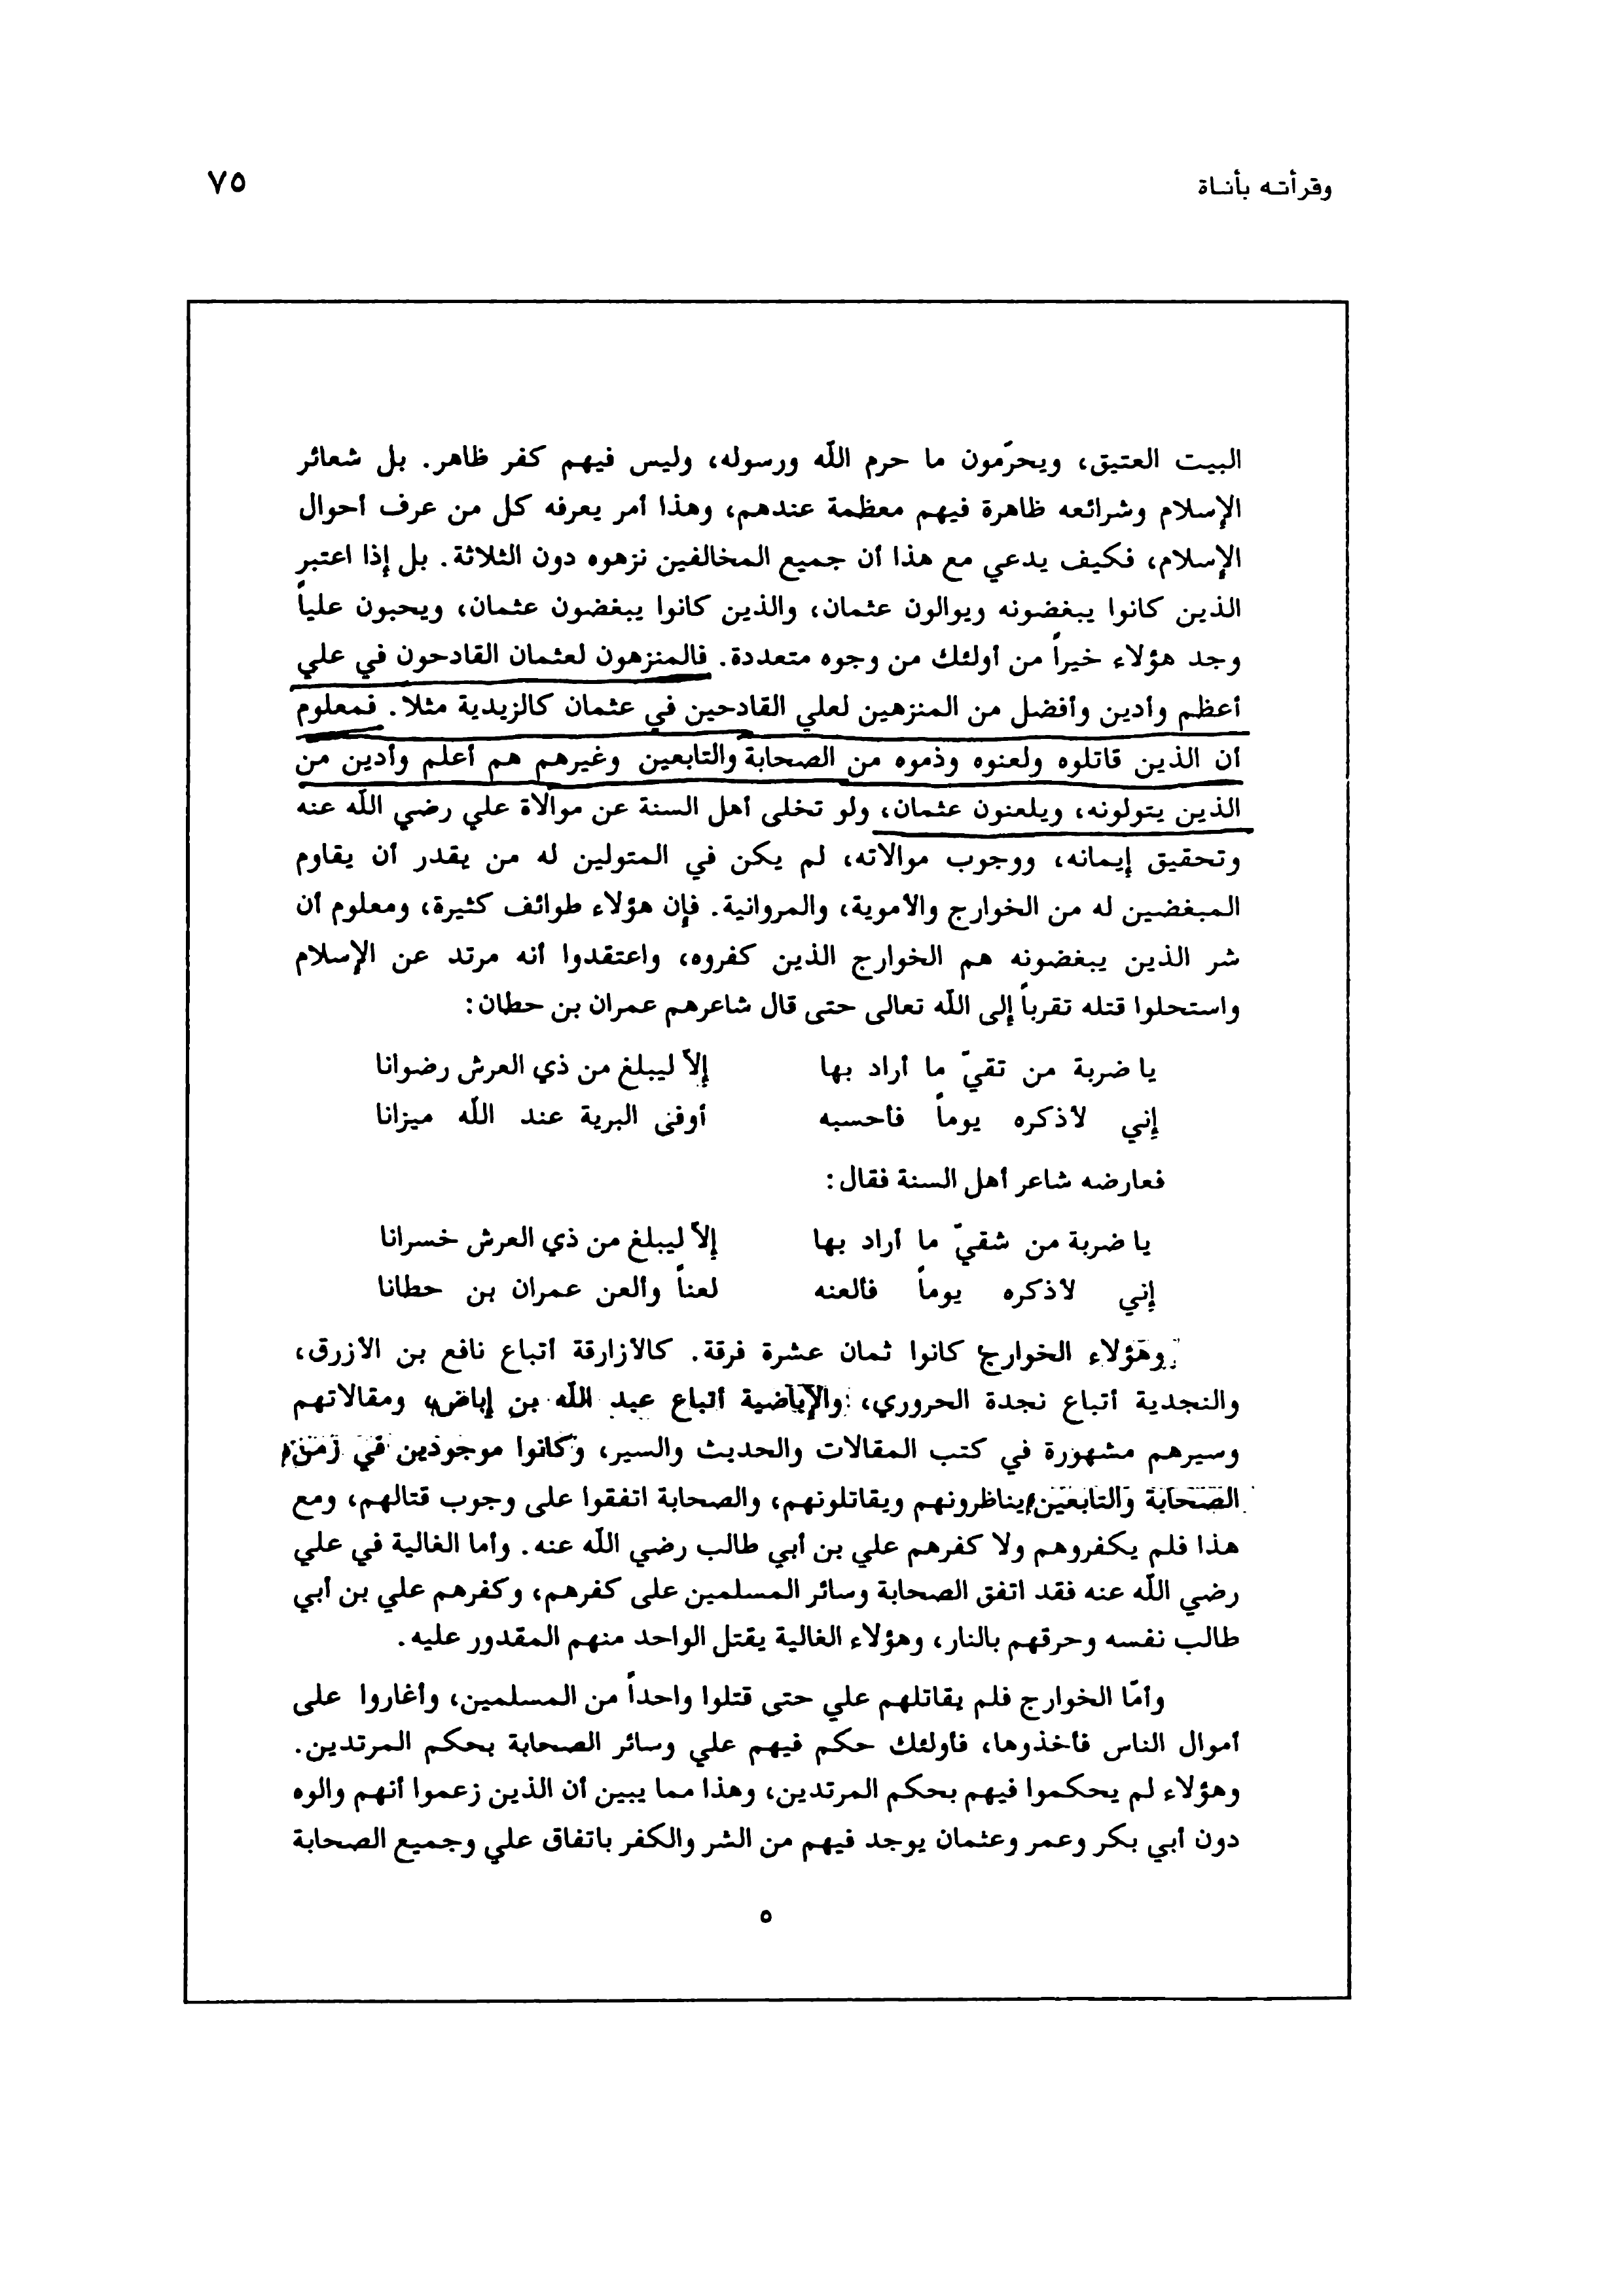 وقرأته بأناة
٧٥
البيت العتيق، ويحرّمون ما حرم اللّه ورسوله، وليس فيهم كفر ظاهر. بل شعائر
الإسلام وشرائعه ظاهرة فيهم معظمة عندهم، وهذا أمر يعرفه كل من عرف أحوال
الإسلام، فكيف يدعي مع هذا أن جميع المخالفين نزهوه دون الثلاثة. بل إذا اعتبر
الذين كانوا يبغضونه ويوالون عثمان، والذين كانوا يبغضون عثمان، ويحبون علياً
وجد هؤلاء خيراً من أولئك من وجوه متعددة. فالمنزهون لعثمان القادحون في علي
أعظم وأدين وأفضل من المنزهين لعلي القادحين في عثمان كالزيدية مثلا. فمعلوم
أن الذين قاتلوه ولعنوه وذموه من الصحابة والتابعين وغيرهم هم أعلم وأدين من
الذين يتولونه، ويلعنون عثمان، ولو تخلى أهل السنة عن موالاة علي رضي اللّه عنه
وتحقيق إيمانه، ووجوب موالاته، لم يكن في المتولين له من يقدر أن يقاوم
المبغضين له من الخوارج والأموية، والمروانية. فإن هؤلاء طوائف كثيرة، ومعلوم أن
شر الذين يبغضونه هم الخوارج الذين كفروه، واعتقدوا أنه مرتد عن الإسلام
واستحلوا قتله تقرباً إلى اللّه تعالى حتى قال شاعرهم عمران بن حطان:
يا ضربة من تقيّ ما أراد بها إلاّ ليبلغ من ذي العرش رضوانا
إني لأذكره يوماً فأحسبه أوفى البرية عند اللّه ميزانا
فعارضه شاعر أهل السنة فقال:
يا ضربة من شقيّ ما أراد بها إلاّ ليبلغ من ذي العرش خسرانا
إني لأذكره يوماً فألعنه لعناً وألعن عمران بن حطانا
وهؤلاء الخوارج كانوا ثمان عشرة فرقة. كالأزارقة أتباع نافع بن الأزرق،
والنجدية أتباع نجدة الحروري، والإباضية أتباع عبد اللّه بن إباض، ومقالاتهم
وسيرهم مشهورة في كتب المقالات والحديث والسير، وكانوا موجودين في زمن
الصحابة والتابعين يناظرونهم ويقاتلونهم، والصحابة اتفقوا على وجوب قتالهم، ومع
هذا فلم يكفروهم ولا كفرهم علي بن أبي طالب رضي اللّه عنه. وأما الغالية في علي
رضي اللّه عنه فقد اتفق الصحابة وسائر المسلمين على كفرهم، وكفرهم علي بن أبي
طالب نفسه وحرقهم بالنار، وهؤلاء الغالية يقتل الواحد منهم المقدور عليه.
وأمّا الخوارج فلم يقاتلهم علي حتى قتلوا واحداً من المسلمين، وأغاروا على
أموال الناس فأخذوها، فأولئك حكم فيهم علي وسائر الصحابة بحكم المرتدين.
وهؤلاء لم يحكموا فيهم بحكم المرتدين، وهذا مما يبين أن الذين زعموا أنهم والوه
دون أبي بكر وعمر وعثمان يوجد فيهم من الشر والكفر باتفاق علي وجميع الصحابة
٥